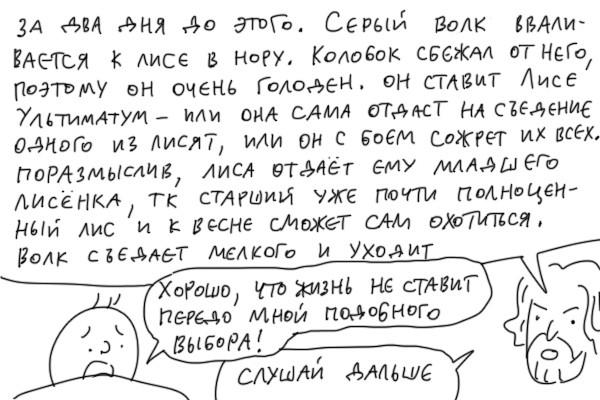 ЗА ДВА ДНЯ ДО ЭТОГО. СЕРЫЙ ВОЛК ВВАЛИ-
ВАЕТСЯ К ЛИСЕ В НОРУ. КОЛОБОК СБЕЖАЛ ОТ НЕГО,
ПОЭТОМУ ОН ОЧЕНЬ ГОЛОДЕН. ОН СТАВИТ ЛИСЕ
УЛЬТИМАТУМ – ИЛИ ОНА САМА ОТДАСТ НА СЪЕДЕНИЕ
ОДНОГО ИЗ ЛИСЯТ, ИЛИ ОН С БОЕМ СОЖРЕТ ИХ ВСЕХ.
ПОРАЗМЫСЛИВ, ЛИСА ОТДАЁТ ЕМУ МЛАДШЕГО
ЛИСЁНКА, ТК СТАРШИЙ УЖЕ ПОЧТИ ПОЛНОЦЕН-
НЫЙ ЛИС И К ВЕСНЕ СМОЖЕТ САМ ОХОТИТЬСЯ.
ВОЛК СЪЕДАЕТ МЕЛКОГО И УХОДИТ
ХОРОШО, ЧТО ЖИЗНЬ НЕ СТАВИТ
ПЕРЕДО МНОЙ ПОДОБНОГО
ВЫБОРА!
СЛУШАЙ ДАЛЬШЕ